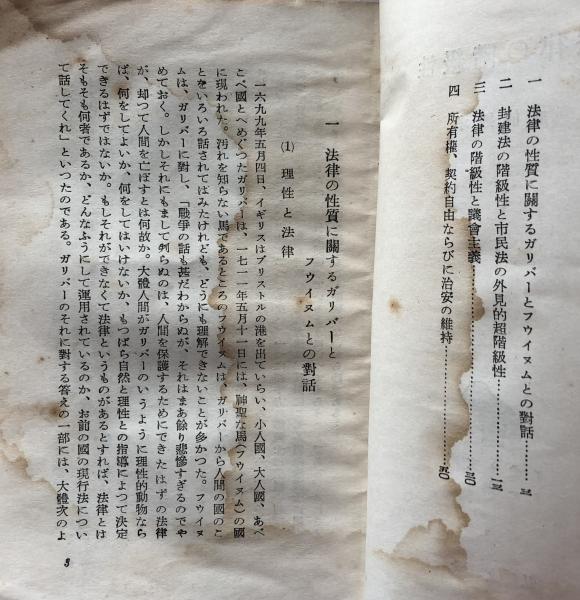 一 法律の性質に關するガリバーとフウイヌムとの對話……………三
二 封建法の階級性と市民法の外見的超階級性……………一三
三 法律の階級性と議會主義……………三〇
四 所有權、契約自由ならびに治安の維持……………五〇
一 法律の性質に關するガリバーと
フウイヌムとの對話
(1) 理性と法律
一六九九年五月四日、イギリスはブリストルの港を出ていらい、小人國、大人國、あべ
こべ國とへめぐつたガリバーは、一七一一年五月十一日には、神聖な馬(フウイヌム)の國
に現われた。汚れを知らない馬であるところのフウイヌムは、ガリバーから人間の國のこ
とをいろいろ話されてはみたけれども、どうにも理解できないことが多かつた。フウイヌ
ムは、ガリバーに對し、「戰爭の話も甚だわからぬが、それはまあ餘り悲慘すぎるのでや
めておく。しかしそれにもまして判らぬのは、人間を保護するためにできたはずの法律
が、却つて人間を亡ぼすとは何故か。大體人間がガリバーのいうように理性的動物なら
ば、何をしてよいか、何をしてはいけないか、もつぱら自然と理性との指導によつて決定
できるはずではないか。もしそれができなくて法律というものがあるとすれば、法律とは
そもそも何者であるか、どんなふうにして運用されているのか、お前の國の現行法につい
て話してくれ」といつたのである。ガリバーのそれに對する答えの一部には、大體次のよ
3